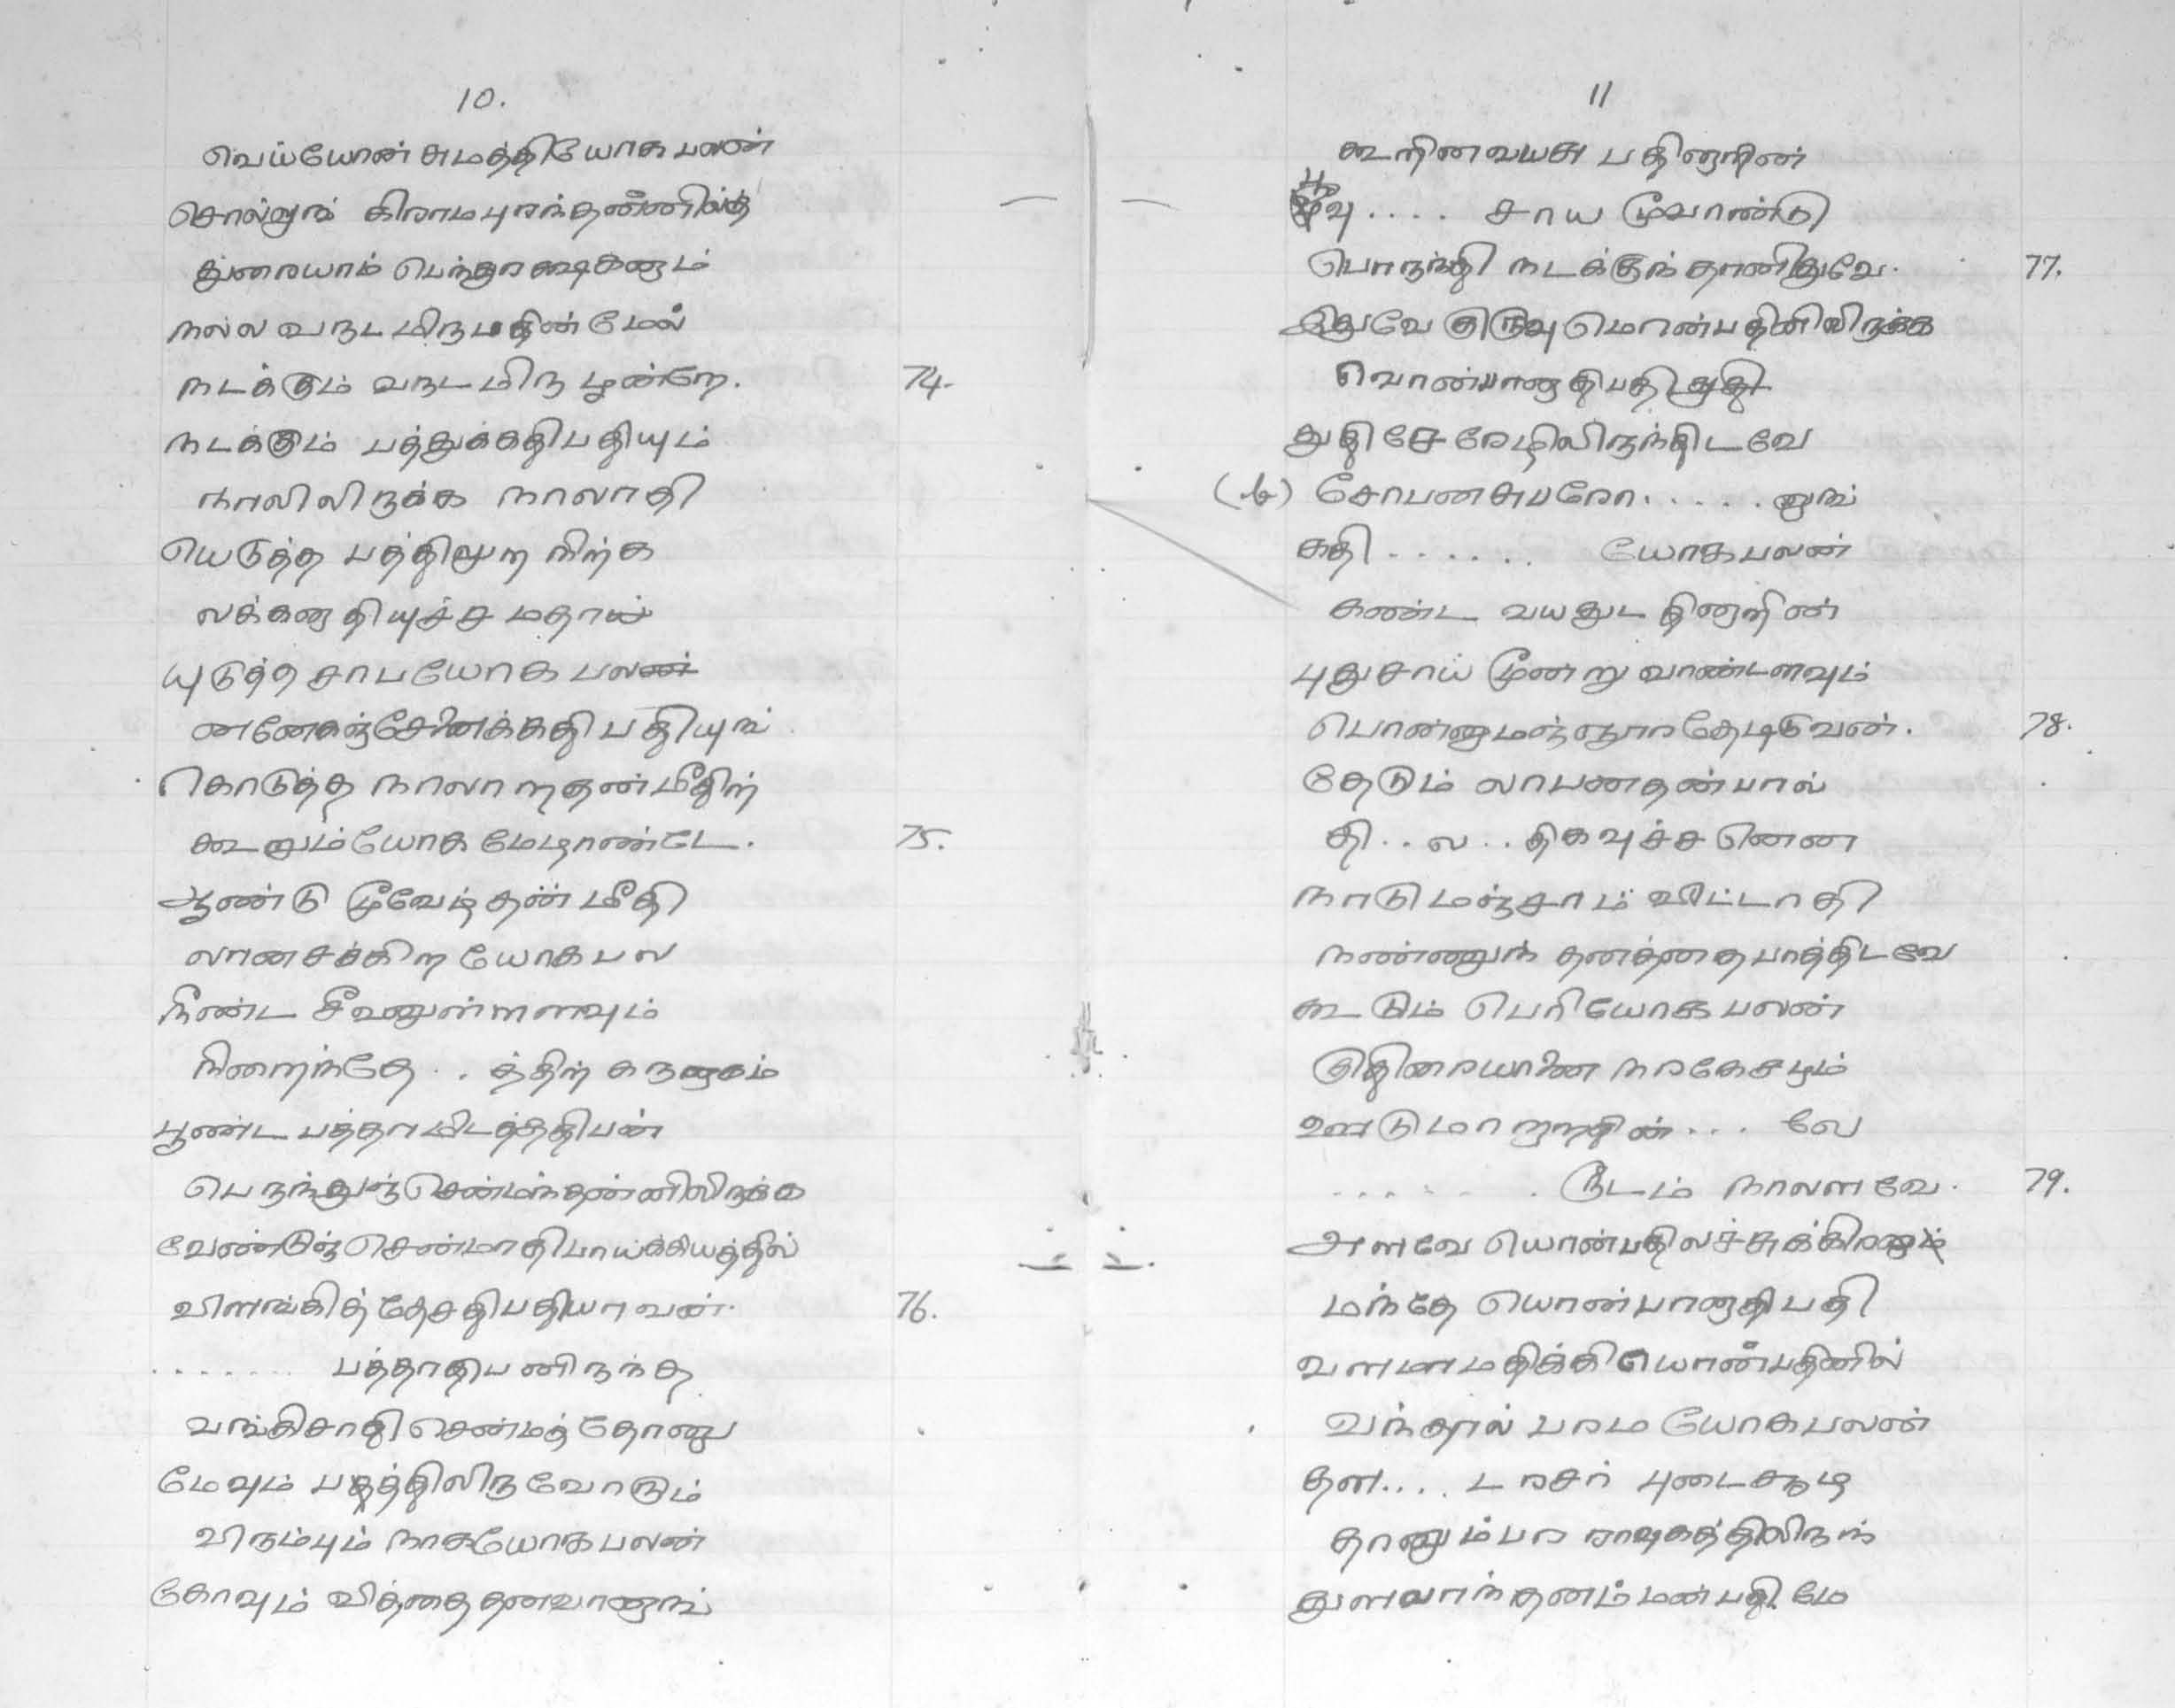 10.
வெய்யோன் சுமத்தியோக பலன்
சொல்லுங் கிராமபுரந்தண்ணில்
துரையாம் பெந்துரக்ஷகனும்
நல்ல வருட மிருபதின் மேல்
நடக்கும் வருட மிரு மூன்றே. 74.
நடக்கும் பத்துக்கதிபதியும்
நாலிலிருக்க நாலாதி
யெடுத்த பத்திலுற நிற்க
லக்கனாதியுச்ச மதாய்
யடுத்த சாபயோக பலன்
னனேகஞ்சேனைக்கதி பதியுங்
கொடுத்த நாலாறுதன்மீதிற்
கூறும்யோக மேழாண்டே. 75.
ஆண்டு மூவேழ் தன் மீதி
லானசக்கிற யோகபல
நீண்ட சீவனுள்ளளவும்
நிறைந்தே . . த்திற் கருளுகம்
பூண்ட பத்தாமிடத்ததிபன்
பெருந்துஞ்சென்மந்தன்னிலிருக்க
வேண்டுஞ்சென்மாதிபாய்க்கியத்தில்
விளங்கித் தேசதிபதியாவன். 76.
. . . . . . . பத்தாதிபனிருந்த
வங்கிசாதி சென்மத் தோனு
மேவும் பத்திலிருவோரும்
விரும்பும் நாகயோகபலன்
கோவும் வித்தை தனவானுங்
11
கூறினவயசு பதினாறின்
வு . . . . சாய மூவாண்டு
பொருந்தி நடக்குந் தானிதுவே. 77.
இதுவே குருவு மொன்பதினிலிருக்க
வொன்பானதிபதி துதி
துதி சேரேழிலிருந்திடவே
(ஃ) சோபனசுபரோ . . . . . லுங்
கதி . . . . . . யோகபலன்
கண்ட வயதுட தினாறின்
புதுசாய் மூன்று வாண்டளவும்
பொன்னுமஞ்ஞூர தேடிடுவன். 78.
தேடும் லாபனதன்பால்
தி . . ல . . திகவுச்ச னென
நாடு மஞ்சாம் விட்டாதி
நண்ணுந் தனத்தை பாத்திடவே
கூடும் பெரியோக பலன்
குதிரையானை நரகேசமும்
ஊடுமாறாறின் . . . வே
. . . . . . . ருடம் நாலளவே. 79.
அளவே யொன்பதிலச்சுக்கிரனு
மந்தே யொன்பானதிபதி
வளமாமதிக்கி யொன்பதினில்
வந்தால் பரம யோகபலன்
தள . . . . டரசர் புடைசூழ
தானும்பர ராவுகத்திலிருந்
துளவாந் தனம்மண்பதி மே